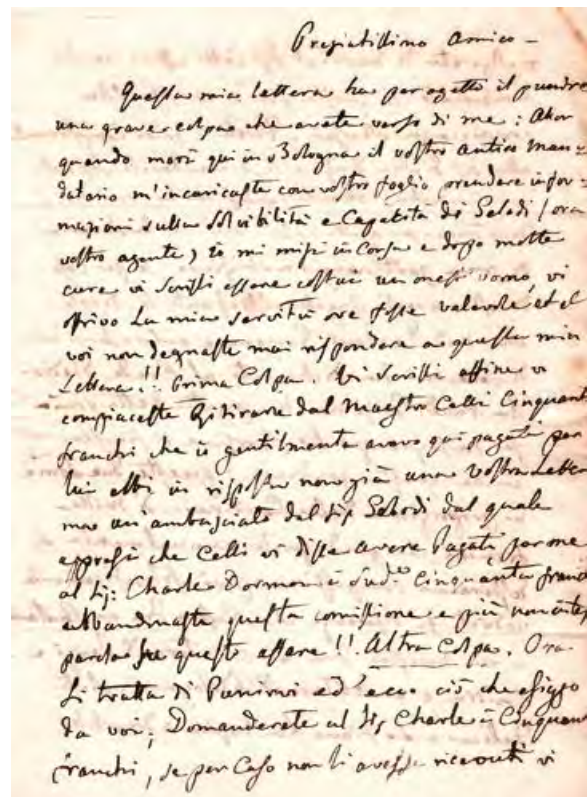 Pregiatissimo Amico –
Questa mia lettera ha per ogetto il punire
una grave colpa che avete verso di me: Alor
quando morì qui in Bologna il vostro antico Man-
datario m'incaricaste con vostro foglio prendere infor-
mazioni sulla Solvibilità e Capacità di Selodi (ora
vostro agente) io mi misi in Corsa e doppo molte
cure vi scrissi essere costui un onest' uomo, vi
offrivo la mia servitù ove fosse valevole, et
voi non degnaste mai rispondere a questa mia
Lettera!! Prima Colpa. Vi scrissi affine vi
compiaceste Ritirare dal Maestro Celli Cinquant
franchi che io gentilmente avevo qui pagati per
lui ebbi in risposta non già una vostra Lette
ma un' ambasciata dal Sig Selodi dal quale
appresi che Celli vi disse avere Pagati per me
al Sig: Charle Dormon i Sud.i Cinquanta franchi
abbandonaste questa comissione e più non
parla su questo affare!! Altra Colpa. Ora
Si tratta di Punirvi ed' ecco ciò che esiggo
da voi; Domanderete al Sig Charle i Cinquant
franchi, se per Caso non li avesse ricevuti vi